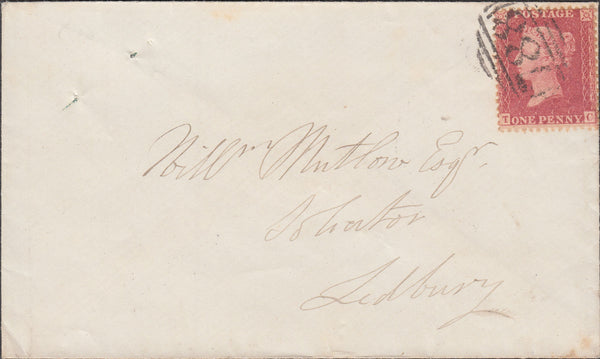 POSTAGE
ONE PENNY
Willm Mutlow Esqr.
Solicitor
Ledbury